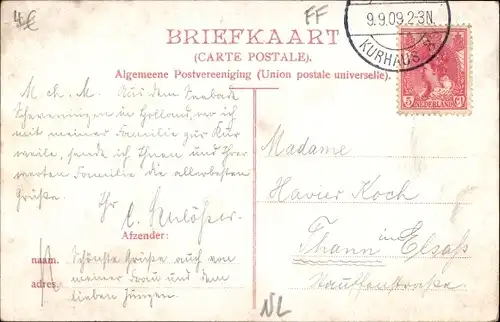 4€
FF
9.9.09.2-3N.
KURHAUS
BRIEFKAART
(CARTE POSTALE).
Algemeene Postvereeniging (Union postale universelle).
5 Ct
NEDERLAND
M. ch. M. Aus dem Seebade
Scheveningen in Holland, wo ich
mit meiner Familie zur Kur
weile, sende ich Ihnen und Ihrer
werten Familie die allerbesten
Grüße.
Ihr
C. Schlösser.
Afzender:
naam.
adres.
Schönste Grüße auch von
meiner Frau und dem
lieben Jungen.
Madame
Xavier Koch
Thann im Elsaß
Stauffenstraße.
NL